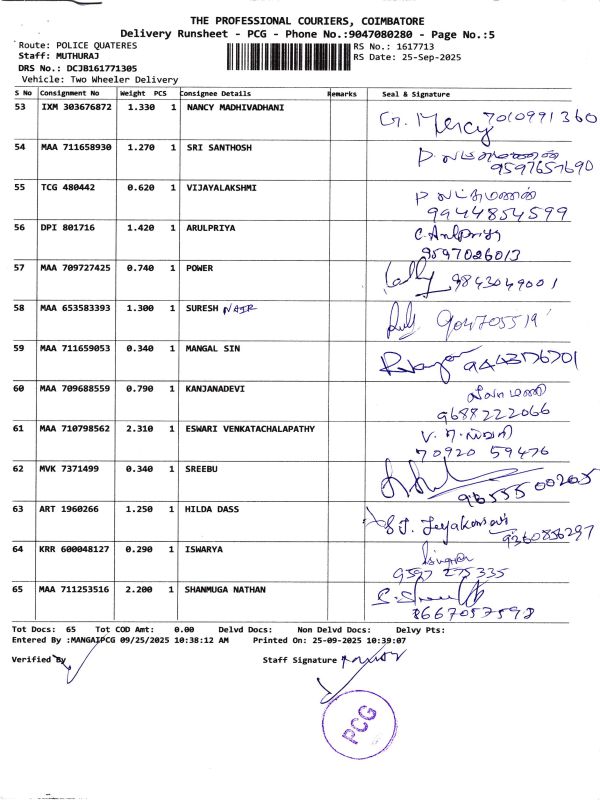 THE PROFESSIONAL COURIERS, COIMBATORE
Delivery Runsheet - PCG - Phone No.:9047080280 - Page No.:5
Route: POLICE QUATERES RS No.: 1617713
Staff: MUTHURAJ RS Date: 25-Sep-2025
DRS No.: DCJB161771305
Vehicle: Two Wheeler Delivery
S No Consignment No Weight PCS Consignee Details Remarks Seal & Signature
53 IXM 303676872 1.330 1 NANCY MADHIVADHANI G. Mercy 7010991360
54 MAA 711658930 1.270 1 SRI SANTHOSH P லட்சுமணன்
9597657690
55 TCG 480442 0.620 1 VIJAYALAKSHMI P லட்சுமணன்
9944854599
56 DPI 801716 1.420 1 ARULPRIYA C. Arulpriya
9597026013
57 MAA 709727425 0.740 1 POWER 9843049001
58 MAA 653583393 1.300 1 SURESH NAIR
59 MAA 711659053 0.340 1 MANGAL SIN
60 MAA 709688559 0.790 1 KANJANADEVI
9688222066
61 MAA 710798562 2.310 1 ESWARI VENKATACHALAPATHY
70920 59476
62 MVK 7371499 0.340 1 SREEBU
63 ART 1960266 1.250 1 HILDA DASS 9360856297
64 KRR 600048127 0.290 1 ISWARYA
9597 275335
65 MAA 711253516 2.200 1 SHANMUGA NATHAN
8667057598
Tot Docs: 65 Tot COD Amt: 0.00 Delvd Docs: Non Delvd Docs: Delvy Pts:
Entered By :MANGAIPCG 09/25/2025 10:38:12 AM Printed On: 25-09-2025 10:39:07
Verified By Staff Signature
PCG